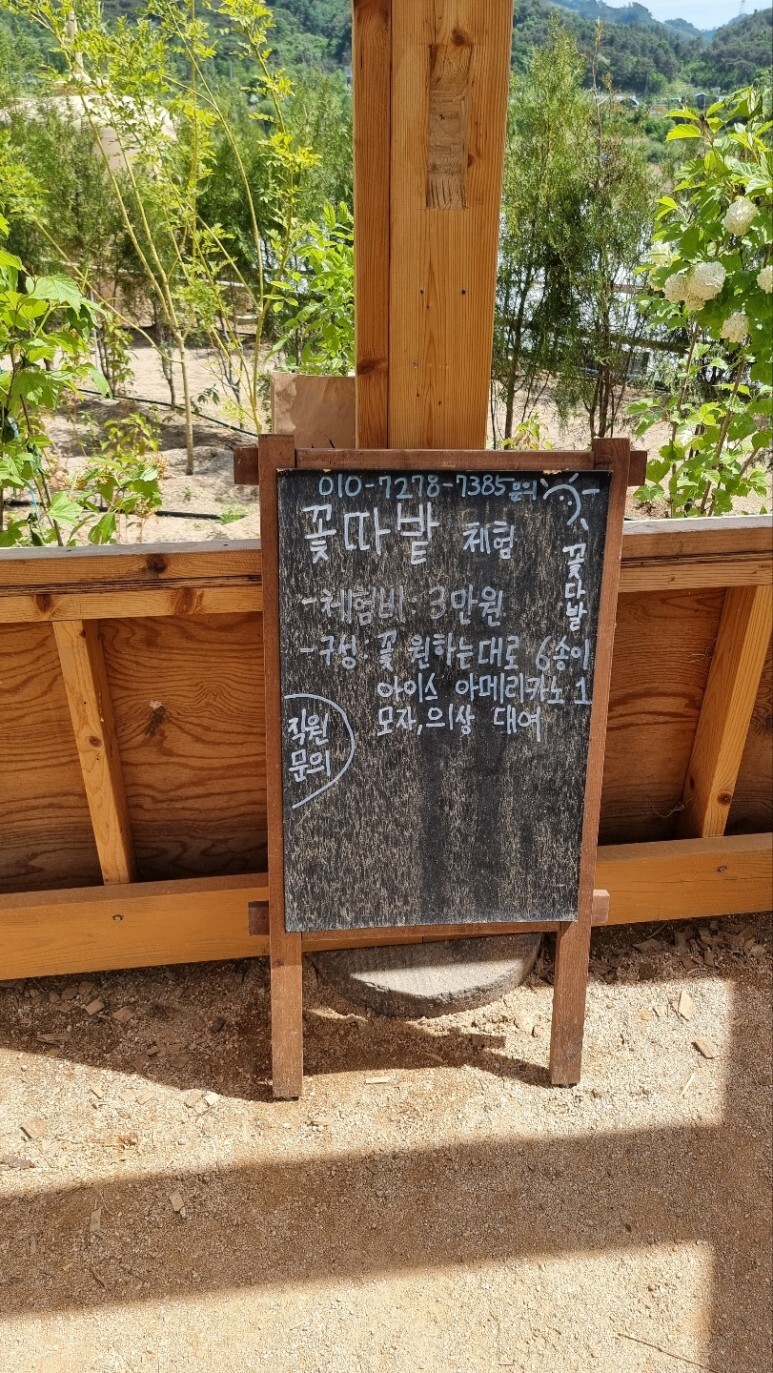 010-7278-7385 문의
꽃따밭 체험
꽃다발
-체험비. 3만원
-구성. 꽃 원하는대로 6송이
아이스 아메리카노 1
모자,의상 대여
직원
문의